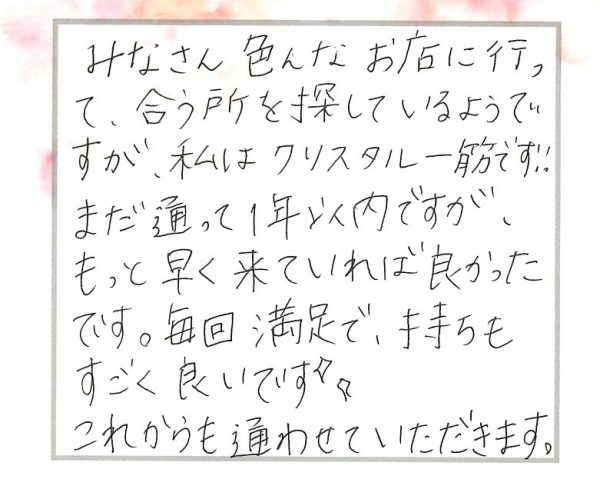 みなさん色んなお店に行っ
て、合う所を探しているようで
すが、私はクリスタル一筋です!!
まだ通って1年以内ですが、
もっと早く来ていれば良かった
です。毎回満足で、持ちも
すごく良いです✧✧
これからも通わせていただきます。